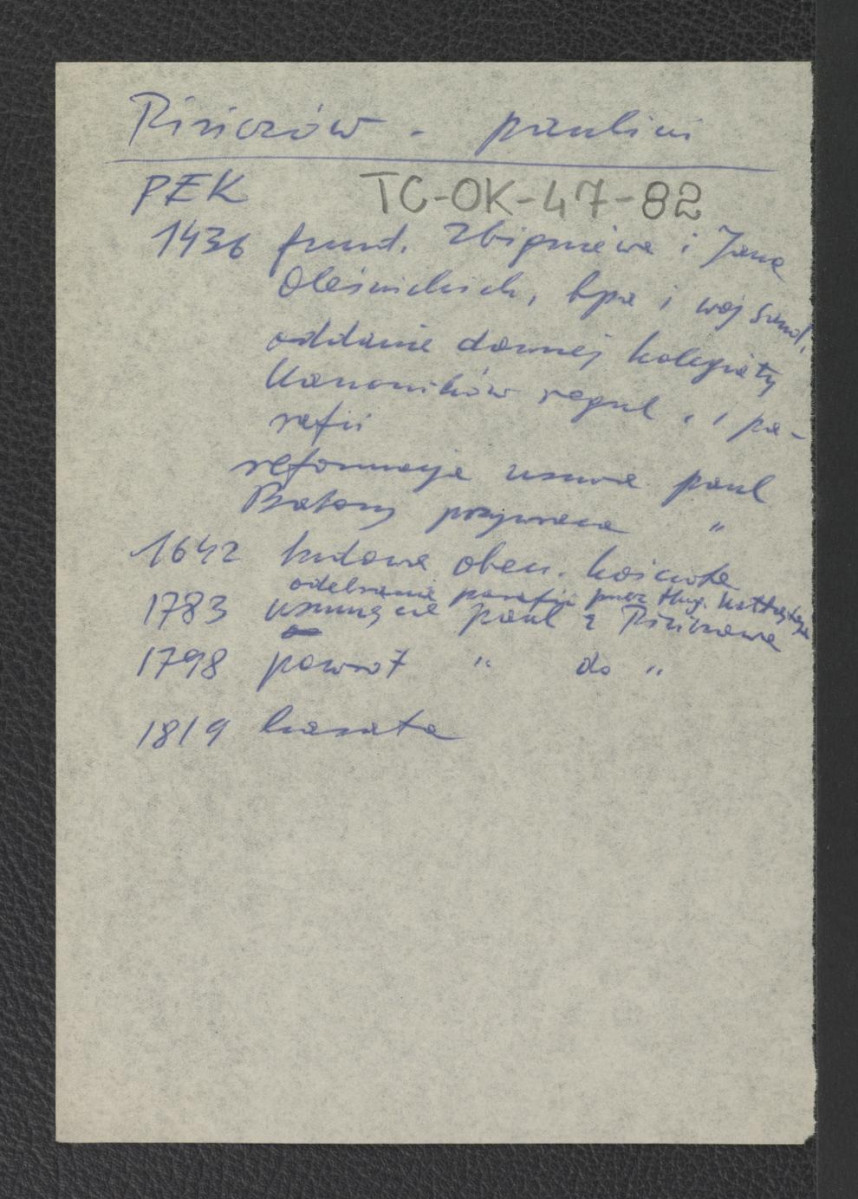 Pińczów - paulini
PEK TC-OK-47-82
1436 fund. Zbigniewa i Jana
Oleśnickich, bpa i woj Sand.
oddanie dawnej kolegiaty
Kanoników regul. i pa-
rafii
reformacja usuwa paul
Batory przywraca "
1642 budowa obecn. kościoła
odebranie parafii przez Hug. Kołłątaja
1783 usunięcie paul z Pińczowa
1798 powrót " do "
1819 kasata